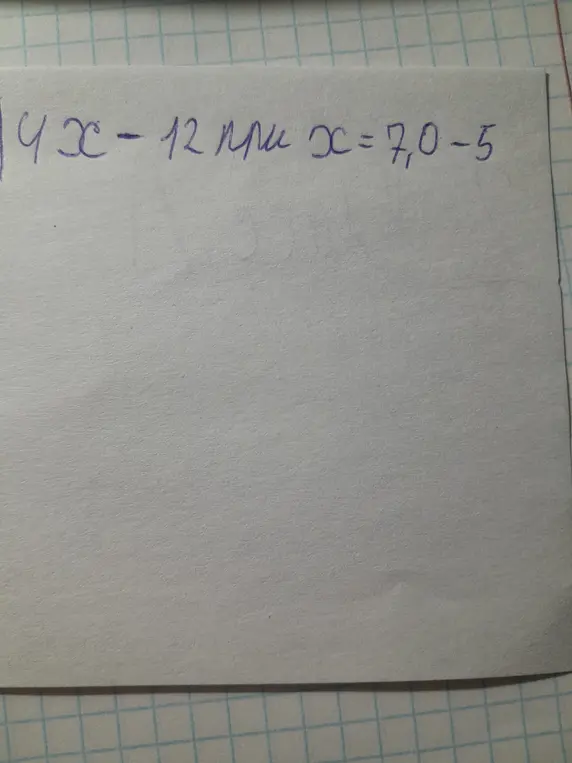 4x - 12 при x = 7,0 - 5